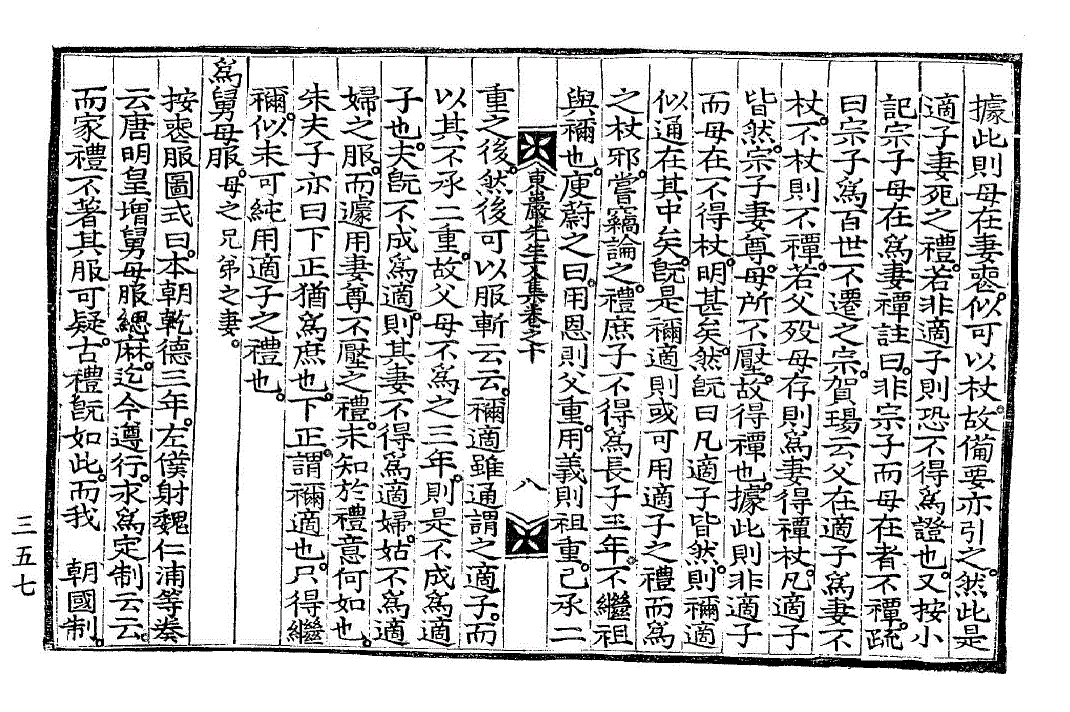 據此則母在妻喪。似可以杖。故備要亦引之。然此是
適子妻死之禮。若非適子則恐不得爲證也。又按小
記宗子母在爲妻禫註曰。非宗子而母在者不禫。疏
曰宗子爲百世不遷之宗。賀瑒云父在適子爲妻不
杖。不杖則不禫。若父歿母存則爲妻得禫杖。凡適子
皆然。宗子妻尊。母所不壓。故得禫也。據此則非適子
而母在不得杖。明甚矣。然旣曰凡適子皆然。則禰適
似通在其中矣。旣是禰適則或可用適子之禮而爲
之杖邪。嘗竊論之。禮庶子不得爲長子三年。不繼祖
與禰也。庾蔚之曰。用恩則父重。用義則祖重。己承二
東巖先生文集卷之十
八
重之後。然後可以服斬云云。禰適雖通謂之適子。而
以其不承二重。故父母不爲之三年。則是不成爲適
子也。夫旣不成爲適。則其妻不得爲適婦。姑不爲適
婦之服。而遽用妻尊不壓之禮。未知於禮意何如也。
朱夫子亦曰下正猶爲庶也。下正。謂禰適也。只得繼
禰。似未可純用適子之禮也。
爲舅母服。母之兄弟之妻。
按喪服圖式曰。本朝乾德三年。左僕射魏仁浦等奏
云唐明皇增舅母服緦麻。迄今遵行。求爲定制云云。
而家禮不著其服可疑。古禮旣如此。而我 朝國制。
三五七